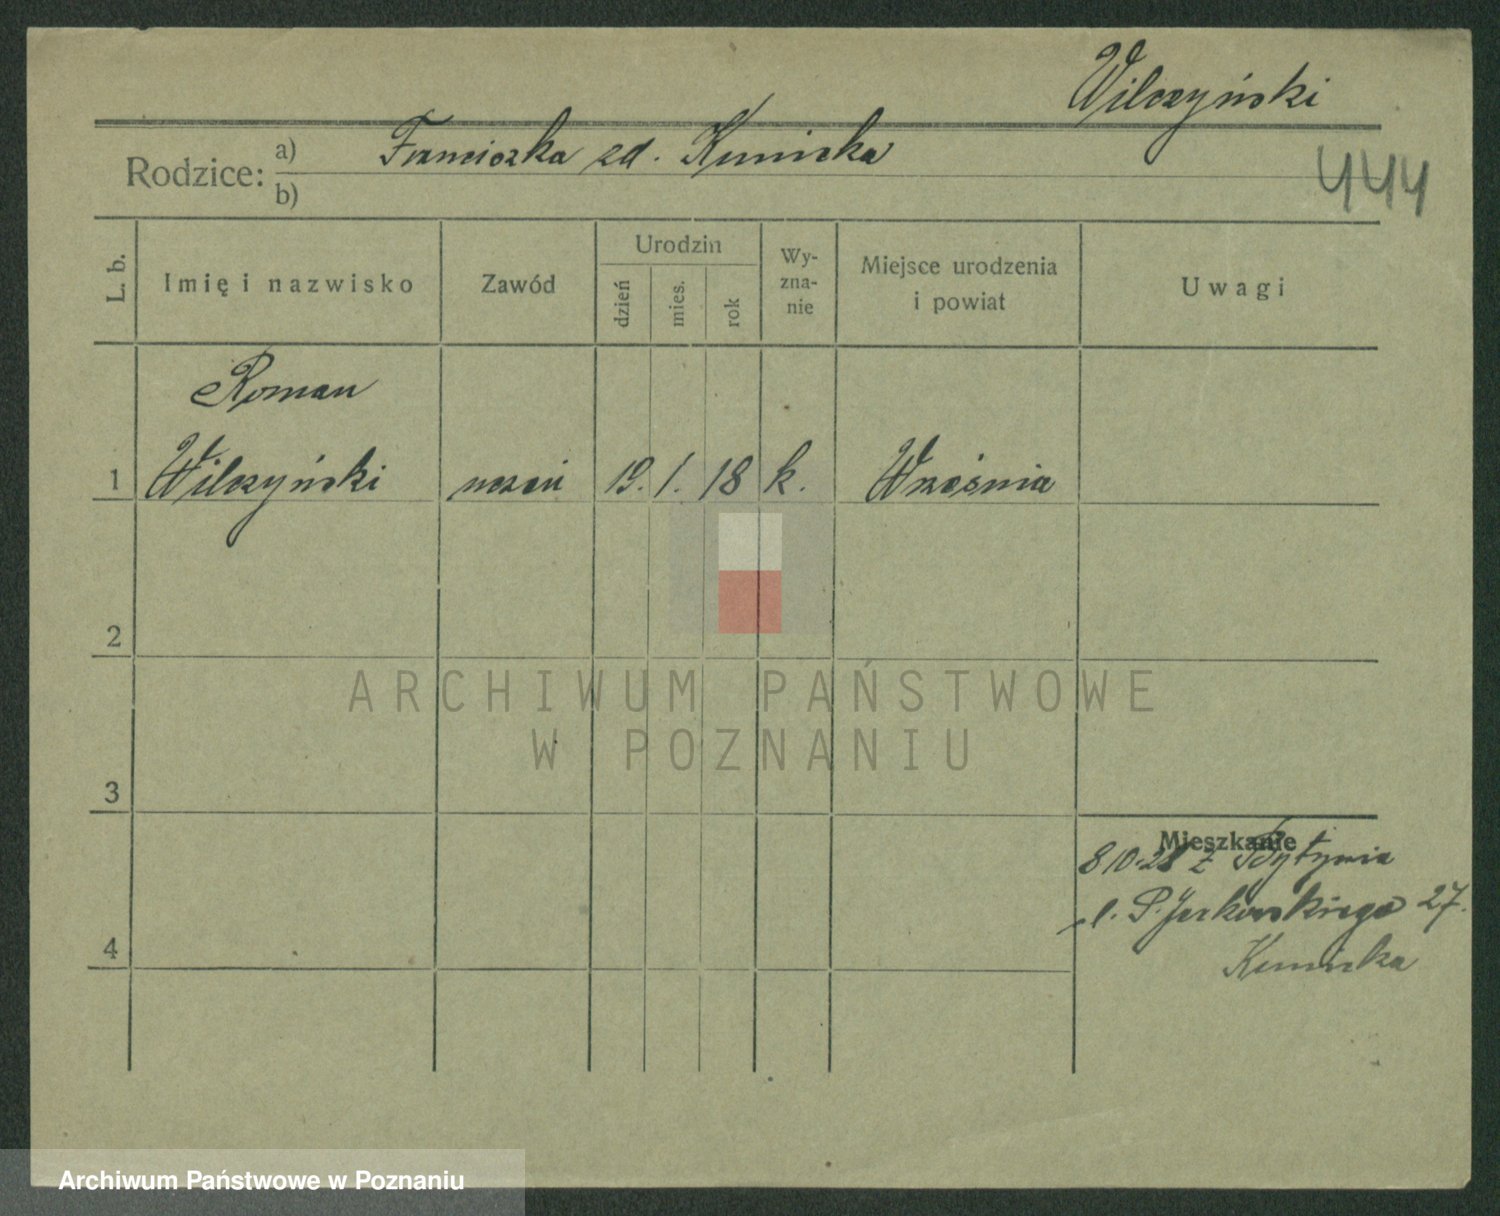 Wilczyński
Rodzice: a) Franciszka zd. Kunicka
b)
444
L. b.
Imię i nazwisko
Zawód
Urodzin
dzień
mies.
rok
Wy-
zna-
nie
Miejsce urodzenia
i powiat
Uwagi
Roman
1 Wilczyński uczeń 19. 1. 18 k. Września
2
3
4
Mieszkanie
8 10.28 z Bytynia
P. Jerkowskiego 27.
Kunicka
ARCHIWUM PAŃSTWOWE
W POZNANIU
Archiwum Państwowe w Poznaniu